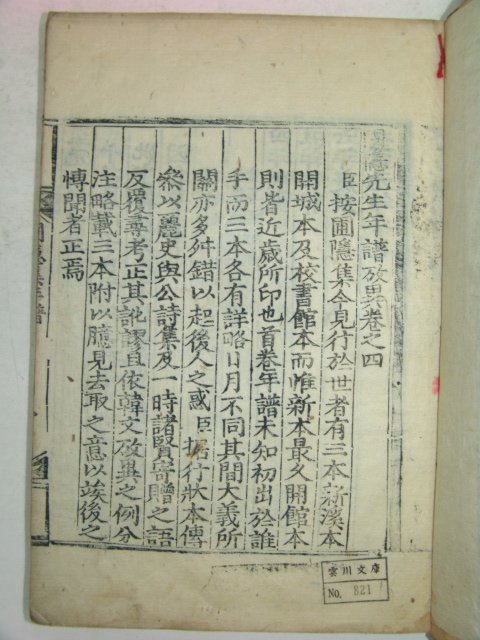 圃隱先生年譜攷異卷之四
臣按圃隱集今見行於世者有三本新溪本
開城本及校書館本而惟新本最久開館本
則皆近歲所印也首卷年譜未知初出於誰
手而三本各有詳略日月不同其間大義所
關亦多舛錯以起後人之惑臣據行狀本傳
叅以麗史與公詩集及一時諸賢寄贈之語
反攷考正其訛謬且依韓文攷異之例分
注略載三本附以臆見去取之意以竢後之
愽聞者正焉
雲川文庫
No. 821